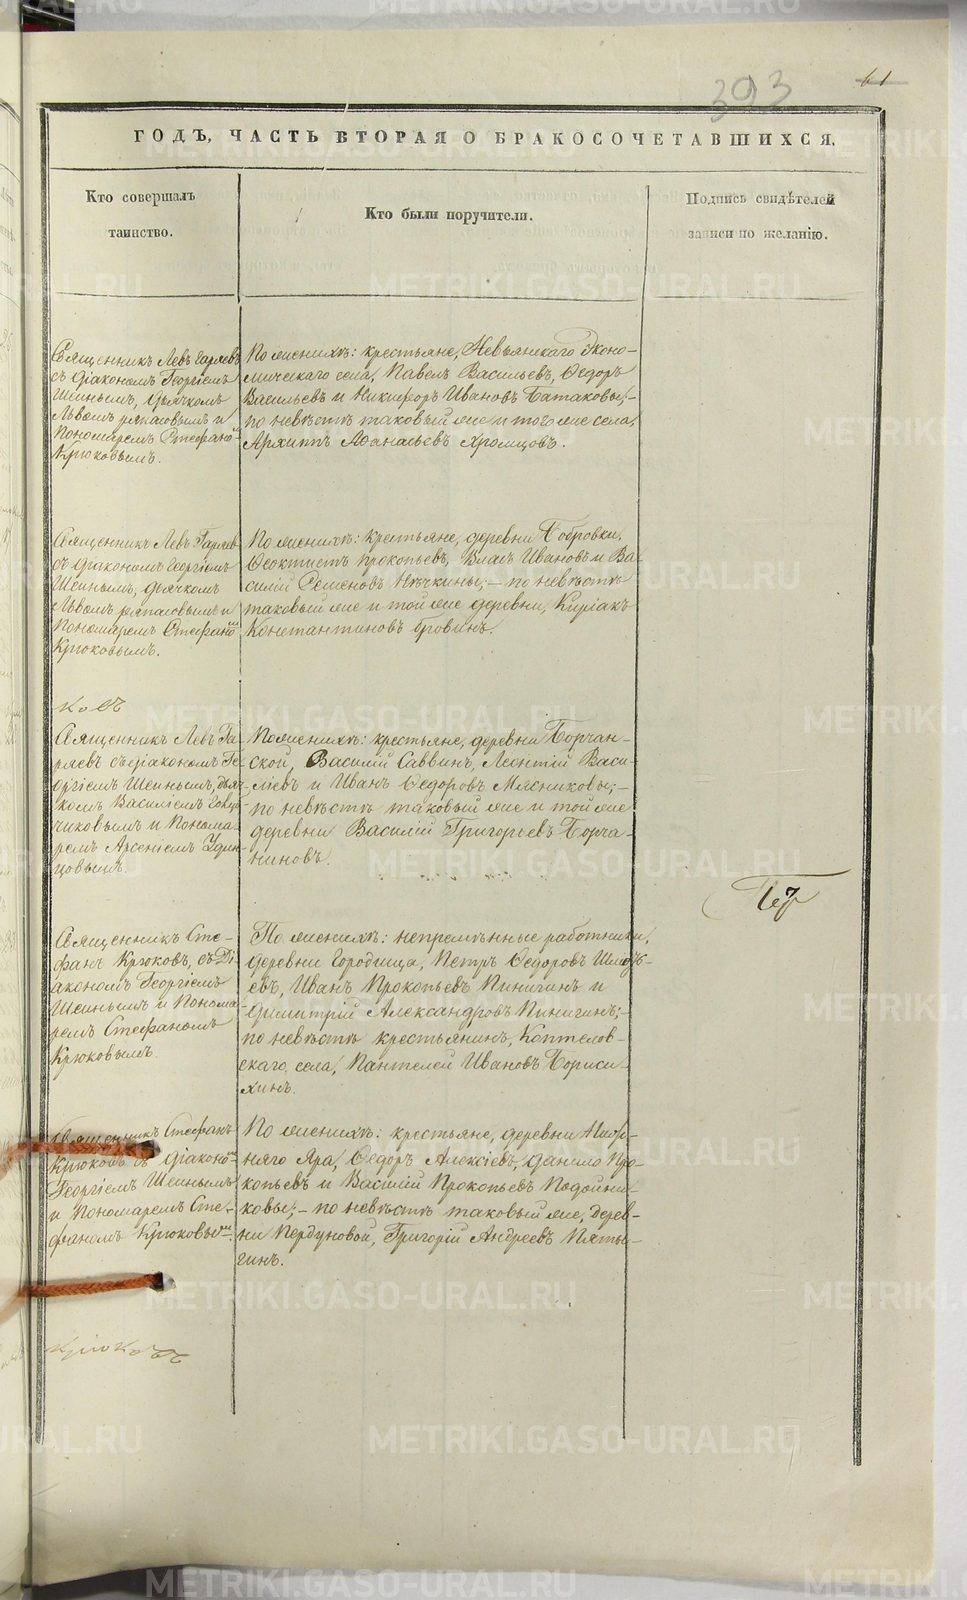 393
61
ГОДЪ, ЧАСТЬ ВТОРАЯ О БРАКОСОЧЕТАВШИХСЯ.
Кто совершалъ
таинство.
Кто были поручители.
Подпись свидѣтелей
записи по желанію.
Священникъ Левъ Гаряевъ
съ діакономъ Георгіемъ
Шеинымъ, дьячкомъ
Львомъ
и
Пономаремъ Стефаномъ
Крюковымъ.
По женихѣ: крестьяне, Невьянскаго Эконо-
мическаго села, Павелъ Васильевъ, Ѳедоръ
Васильевъ и Никифоръ Ивановъ Батаковы;-
по невѣстѣ таковый же и того же села,
Архиппъ Аѳанасьевъ Хромцовъ.
Священникъ Левъ Гаряевъ
съ діакономъ Георгіемъ
Шеинымъ, дьячкомъ
Львомъ
и
Пономаремъ Стефаномъ
Крюковымъ.
По женихѣ: крестьяне, деревни Бобровки,
Ѳеоктистъ Прокопьевъ, Власъ Ивановъ и Ва-
силій Семеновъ Нѣчкины;- по невѣстѣ
таковый же и той же деревни, Киріакъ
Константиновъ
Священникъ Левъ Га-
ряевъ съ діакономъ Ге-
оргіемъ Шеинымъ, дьяч-
комъ Василіемъ
и Понома-
ремъ Арсеніемъ Удин-
цовымъ.
По женихѣ: крестьяне, деревни Борчан-
ской, Василій Саввинъ, Леонтій Васи-
льевъ и Иванъ Ѳедоровъ Мясниковы;-
по невѣстѣ таковый же и той же
деревни Василій Григорьевъ Борча-
ниновъ.
Священникъ Сте-
фанъ Крюковъ, съ Ді-
акономъ Георгіемъ
Шеинымъ и Понома-
ремъ Стефаномъ
Крюковымъ.
По женихѣ: непремѣнные работники,
деревни Городища, Петръ Ѳедоровъ
евъ, Иванъ Прокопьевъ Пинигинъ и
Димитрій Александровъ Пинигинъ;-
по невѣстѣ крестьянинъ, Коптелов-
скаго села, Пантелей Ивановъ Бориси-
хинъ.
Священникъ Стефанъ
Крюковъ съ діакономъ
Георгіемъ Шеинымъ
и Пономаремъ Сте-
фаномъ Крюковымъ.
По женихѣ: крестьяне, деревни
няго Яра, Ѳедоръ Алексіевъ, Данило Про-
копьевъ и Василій Прокопьевъ Подойни-
ковы;- по невѣстѣ таковый же, дерев-
ни Пердуновой, Григорій Андреевъ Пяты-
гинъ.
Крюковъ
METRIKI.GASO-URAL.RU